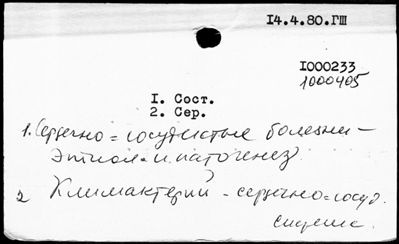 14.4.80.ГШ
1000233
1000405
1. Сост.
2. Сер.
1. Сердечно=сосудистые болезни –
этиол. и патогенез
2 Климактерий – сердечно=сосуд.
система.